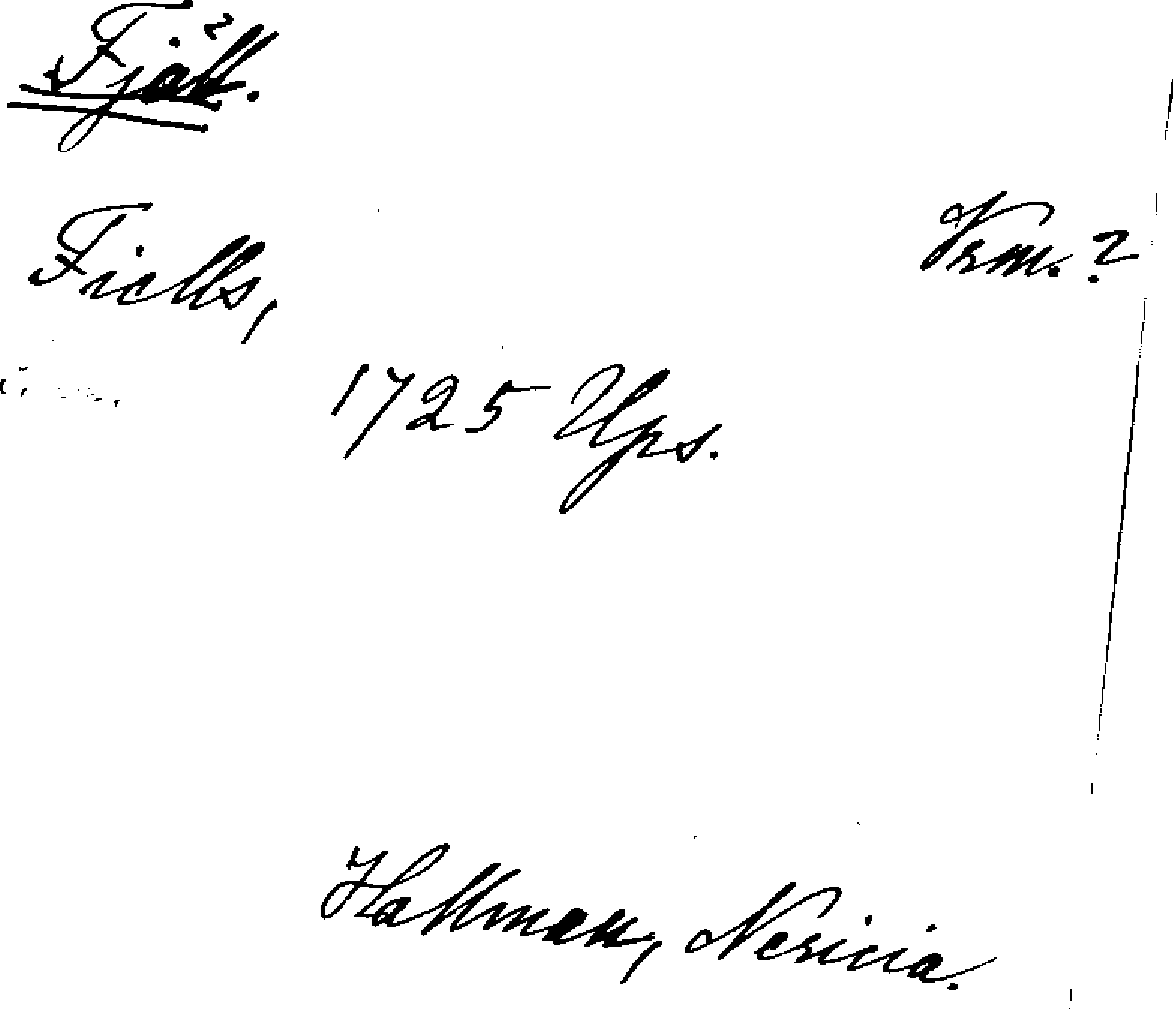 Fjäll.
Fiells, Vrm.?
1725 Ups.
Hallman, Nericia.